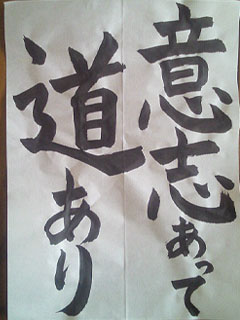 意志あって
道あり